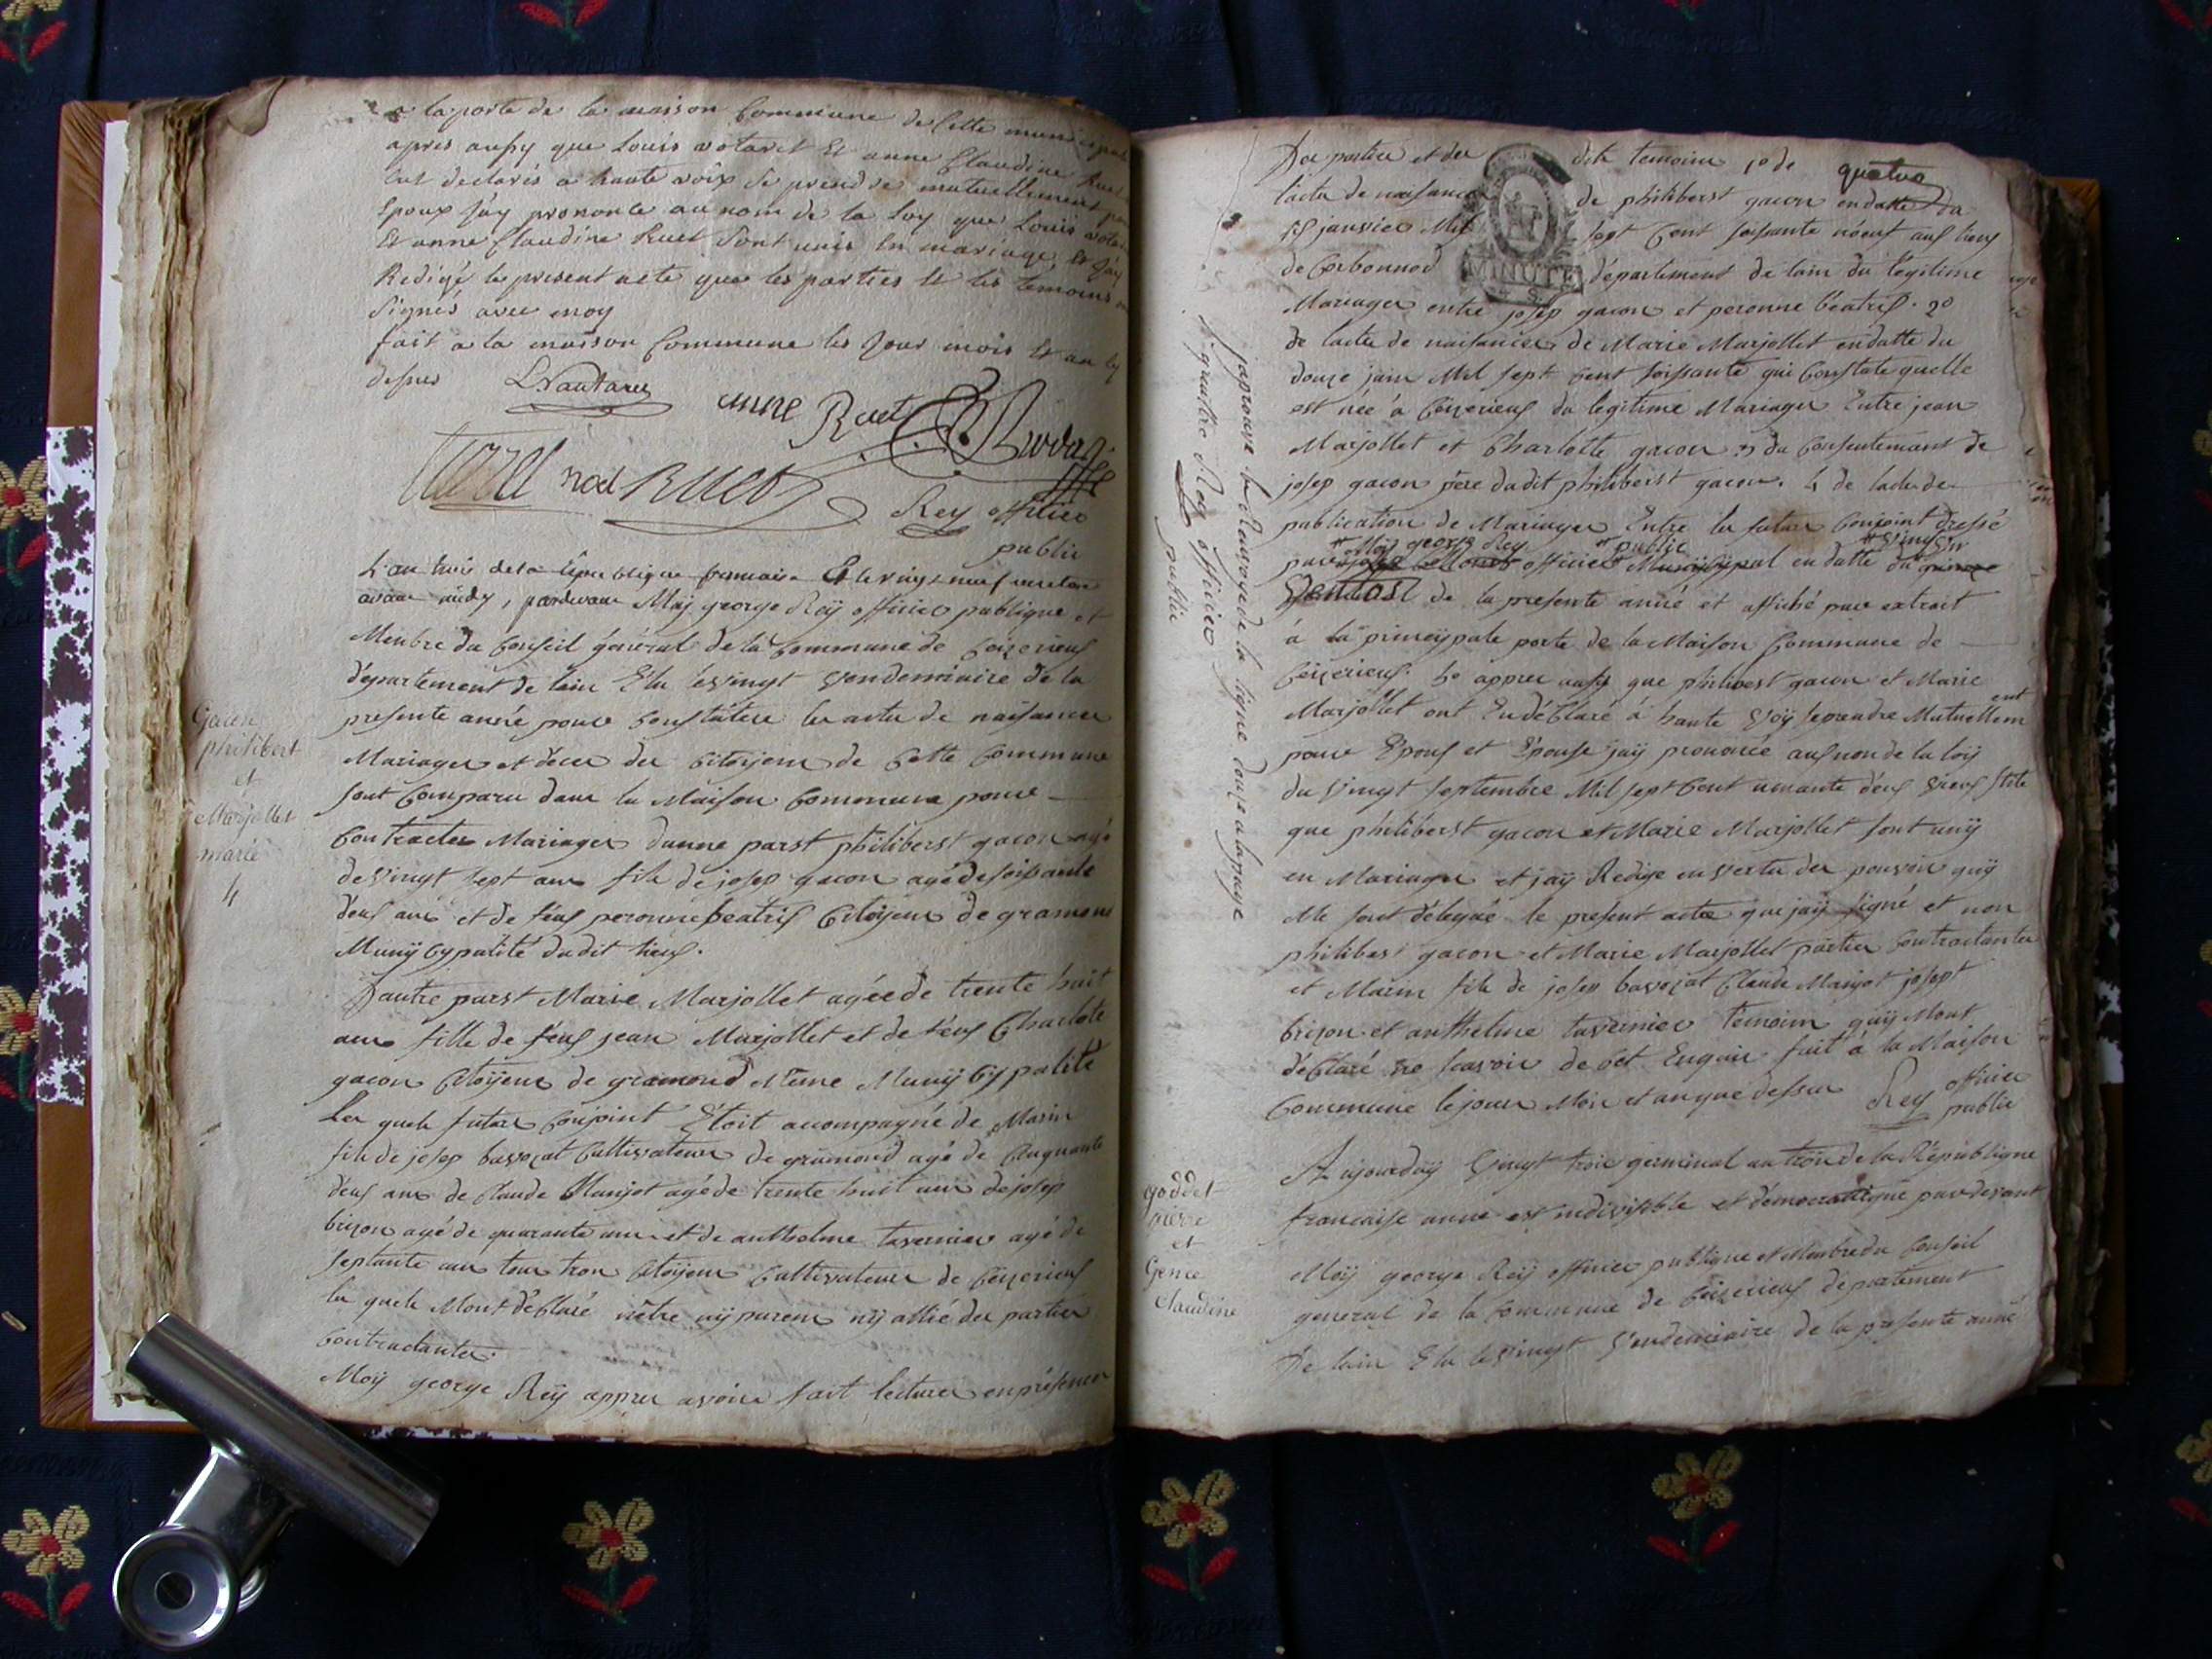 a la porte de la maison Commune de Cette
apres aussy que Louis votaret Et anne Claudine Ruet
Ens declarés a haute voix se prendre mutuellement
Epoux J'ay prononcé au nom de la Loy que Louis
Et anne Claudine Ruet Sont unis En mariage Et J'ay
Redigé le present acte que les parties Et les témoins
Signés avec moy
fait a la maison Commune les Jour mois Et an
desus
anne Ruet
Ruet
Rey officier
public
L'an trois de la République francaise Et le vingt neuf
avant midy, pardevant Moÿ george Reÿ officier publique et
Menbre du Conseil général de la Commune de Ceizerieuf
département de lain Elu le Vingt Vendemiaire de la
presente année pour Constater les actes de naissances
Mariages et deces des Citoÿens de Cette Commune
sont Comparu dans la Maison Commune pour
Contracter Mariages dunne parst philiberst gacon agé
de Vingt sept ans fils de josep gacon agé de soissante
deus ans et de feus peronne beatris Citoÿens de gramond
Munÿcypalité dudit lieus.
Gacon
philibert
et
Marjollet
marie
4
Dautre parst Marie Marjollet agée de trente huit
ans fille de feus jean Marjollet et de feus Charlote
gacon Citoÿens de gramond Même Munÿcypalité
Les quels futurs Conjoint Etoit acompagné de Marin
fils de josep bavozat Cultivateur de gramond agé de Cinquante
deus ans de Claude Marijot agé de trente huit ans de josep
brizon agé de quarante ans et de anthelme tavernier agé de
septante ans tous Citoÿens Cultivateurs de Ceizerieuf
les quels Mont déClaré nêtre nÿ parens nÿ allié des parties
Contractantes.
Moÿ george Reÿ appres avoire fait lectures en présences
Des parties et des dits temoins 1o de
quatre
lacte de naisance de philiberst gacon en datte du
janvier Mil sept Cent soissante neuf aus lieus
de Corbonnod département de lain du légitime
MINUTE
Mariages entre josep gacon et peronne beatris. 2o
de lacte de naisances de Marie Marjollet en datte du
douze juin Mil sept Cent soissante qui Constate quelle
est née à Ceizerieuf du legitime Mariages Entre jean
Marjollet et Charlotte gacon 3 du Consentemant de
josep gacon père dudit philiberst gacon. 4 de lacte de
publication de Mariages Entre les futurs Conjoint dressé
Moÿ george Rey public vingt un
par officier Municipal en datte du
Ventosse de la presente année et affiché par extrait
à la principale porte de la Maison Commune de
Ceizerieuf. 5o appres aussy que philiberst gacon et Marie
Marjollet ont Eu déClaré à haute Voÿ se prendre Mutuellement
pour Epous et Epouse jaÿ prononcé aus non de la loÿ
du Vingt septembre Mil sept Cent nonante deus Vieus stile
que philiberst gacon et Marie Marjollet sont unÿ
en Mariages et jaÿ Redigé en Vertu des pouvoir quÿ
Me sont délegué le present acte que jaÿ signé et non
philiberst gacon et Marie Marjollet parties Contractantes
et Marin fils de josep bavozat Claude Marijot josept
brizon et anthelme tavernier temoins quÿ Mont
déClaré ne scavoir de Cet Enquis fait à la Maison
Commune le jour Mois et an que dessus
Rey officier
public
japrouve le Renvoy de la ligne douze a la page
Rey officier
public
goddet
pierre
et
Gence
Claudine
Aujourduÿ Vingt trois germinal an trois de la République
francaise unne est indivisible et démocratique pardevant
Moÿ george Reÿ officier publique et Menbre du Conseil
general de la Commune de Ceizerieuf departement
De lain Elu le Vingt Vendemiaire de la presente année